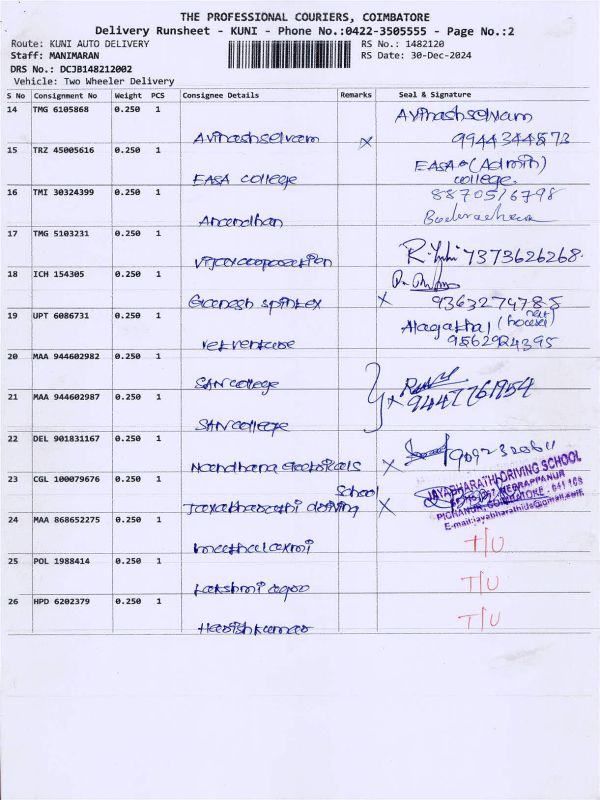 THE PROFESSIONAL COURIERS, COIMBATORE
Delivery Runsheet - KUNI - Phone No.:0422-3505555 - Page No.:2
Route: KUNI AUTO DELIVERY RS No.: 1482120
Staff: MANIMARAN RS Date: 30-Dec-2024
DRS No.: DCJB148212002
Vehicle: Two Wheeler Delivery
S No Consignment No Weight PCS Consignee Details Remarks Seal & Signature
14 TMG 6105868 0.250 1 Avinashselvam
Avinashselvam x 9944344573
15 TRZ 45005616 0.250 1 EASA (Admin)
EASA college college.
16 TMI 30324399 0.250 1 8870516798
Anandhan
17 TMG 5103231 0.250 1
7373626268.
18 ICH 154305 0.250 1
Ganesh spintex x 9363274785
19 UPT 6086731 0.250 1 Alagathal (house)
9562984395
20 MAA 944602982 0.250 1
SAN college
21 MAA 944602987 0.250 1 x 9447761954
SAN college
22 DEL 901831167 0.250 1
Nandhana electricals x
23 CGL 100079676 0.250 1 JAYABHARATHI DRIVING SCHOOL
School
Jayabharathi driving x PICHANUR, COIMBATORE - 641 105
E-mail:jayabharathids@gmail.com
24 MAA 868652275 0.250 1 T/U
25 POL 1988414 0.250 1 T/U
Lakshmi agro
26 HPD 6202379 0.250 1 T/U
Harishkumar